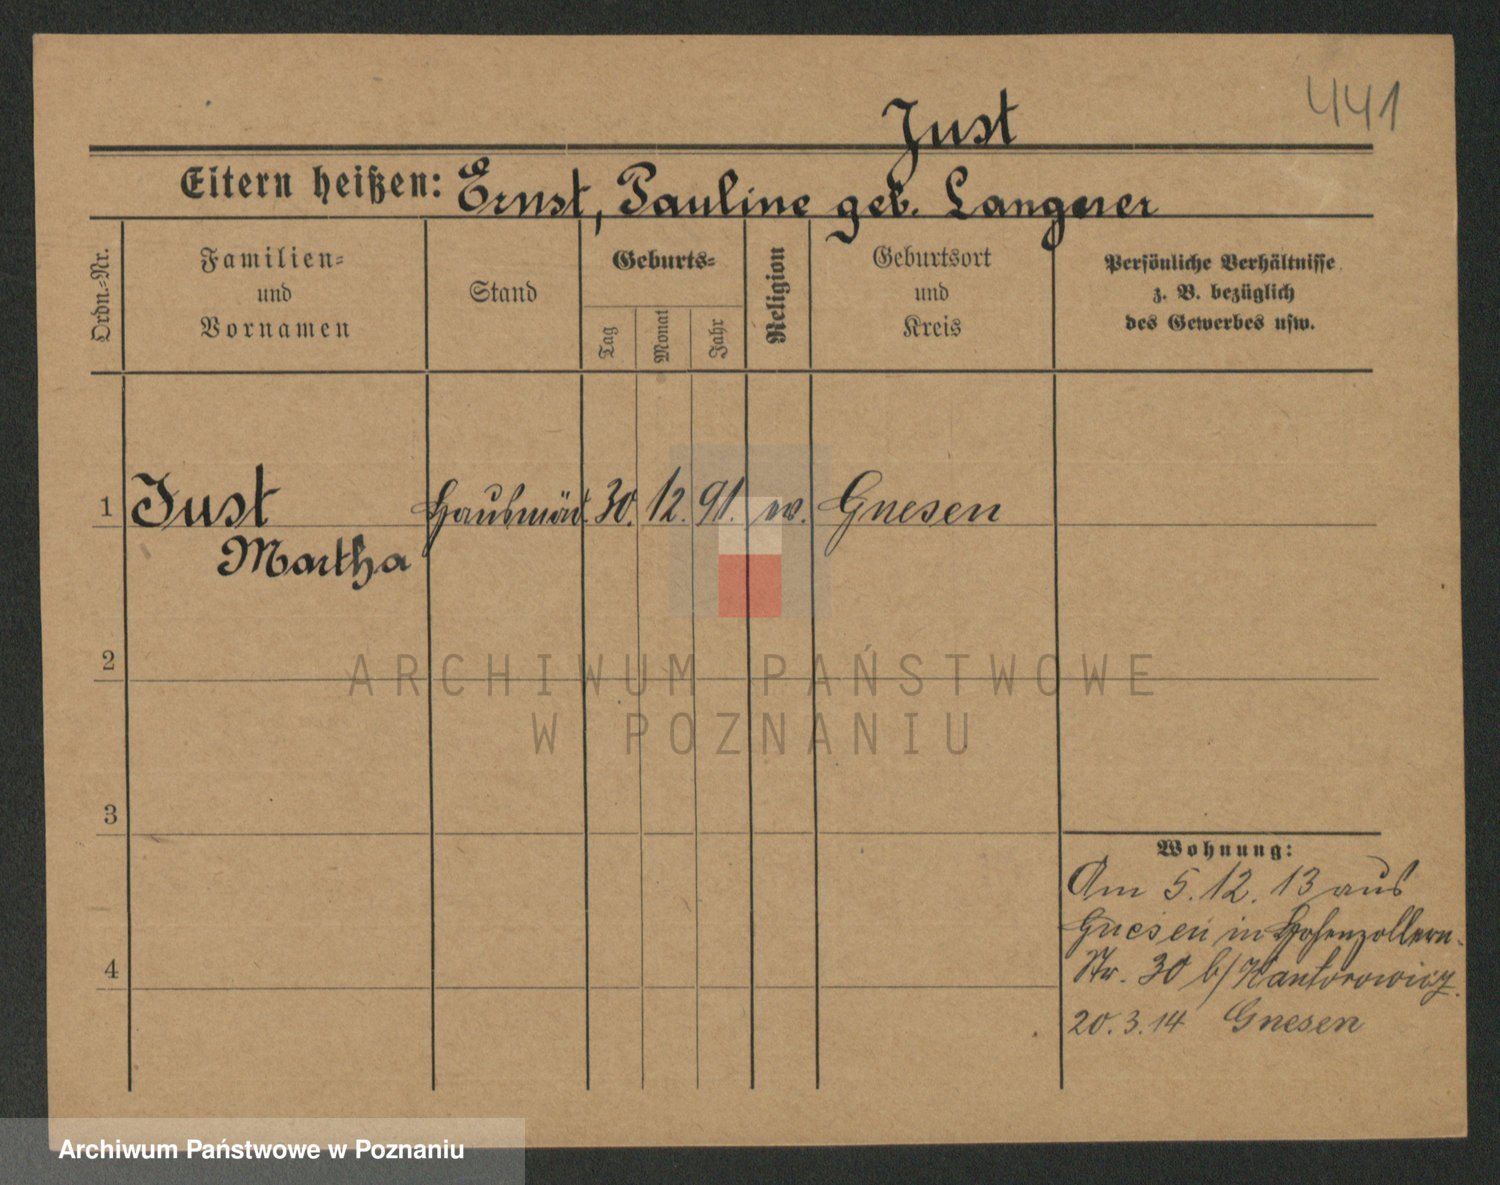 441
Just
Eltern heißen: Ernst, Pauline geb. Langner
Ordn.-Nr.
Familien-
und
Vornamen
Stand
Geburts-
Tag
Monat
Jahr
Religion
Geburtsort
und
Kreis
Persönliche Verhältnisse
z. B. bezüglich
des Gewerbes usw.
1 Just Hausmäd. 30. 12. 91. ev. Gnesen
Martha
2
3
4
Wohnung:
Am 5. 12. 13 aus
Gnesen in Hohenzollern-
Str. 30 b/ Kantorowicz.
20. 3. 14 Gnesen
ARCHIWUM PAŃSTWOWE
W POZNANIU
Archiwum Państwowe w Poznaniu